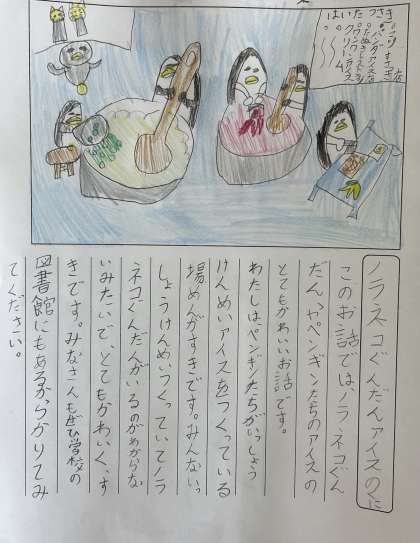 ノラネコぐんだんアイスのくに
このお話では、ノラネコぐん
だんやペンギンたちのアイスの
とてもかわいいお話です。
わたしは、ペンギンたちがいっしょう
けんめいアイスをつくっている
場めんがすきです。みんないっ
しょうけんめいつくっていてノラ
ネコぐんだんがいるのがめからな
いみたいで、とてもかわいく、す
きです。みなさんもぜひ学校の
図書館にもあるからかりてみ
てください。